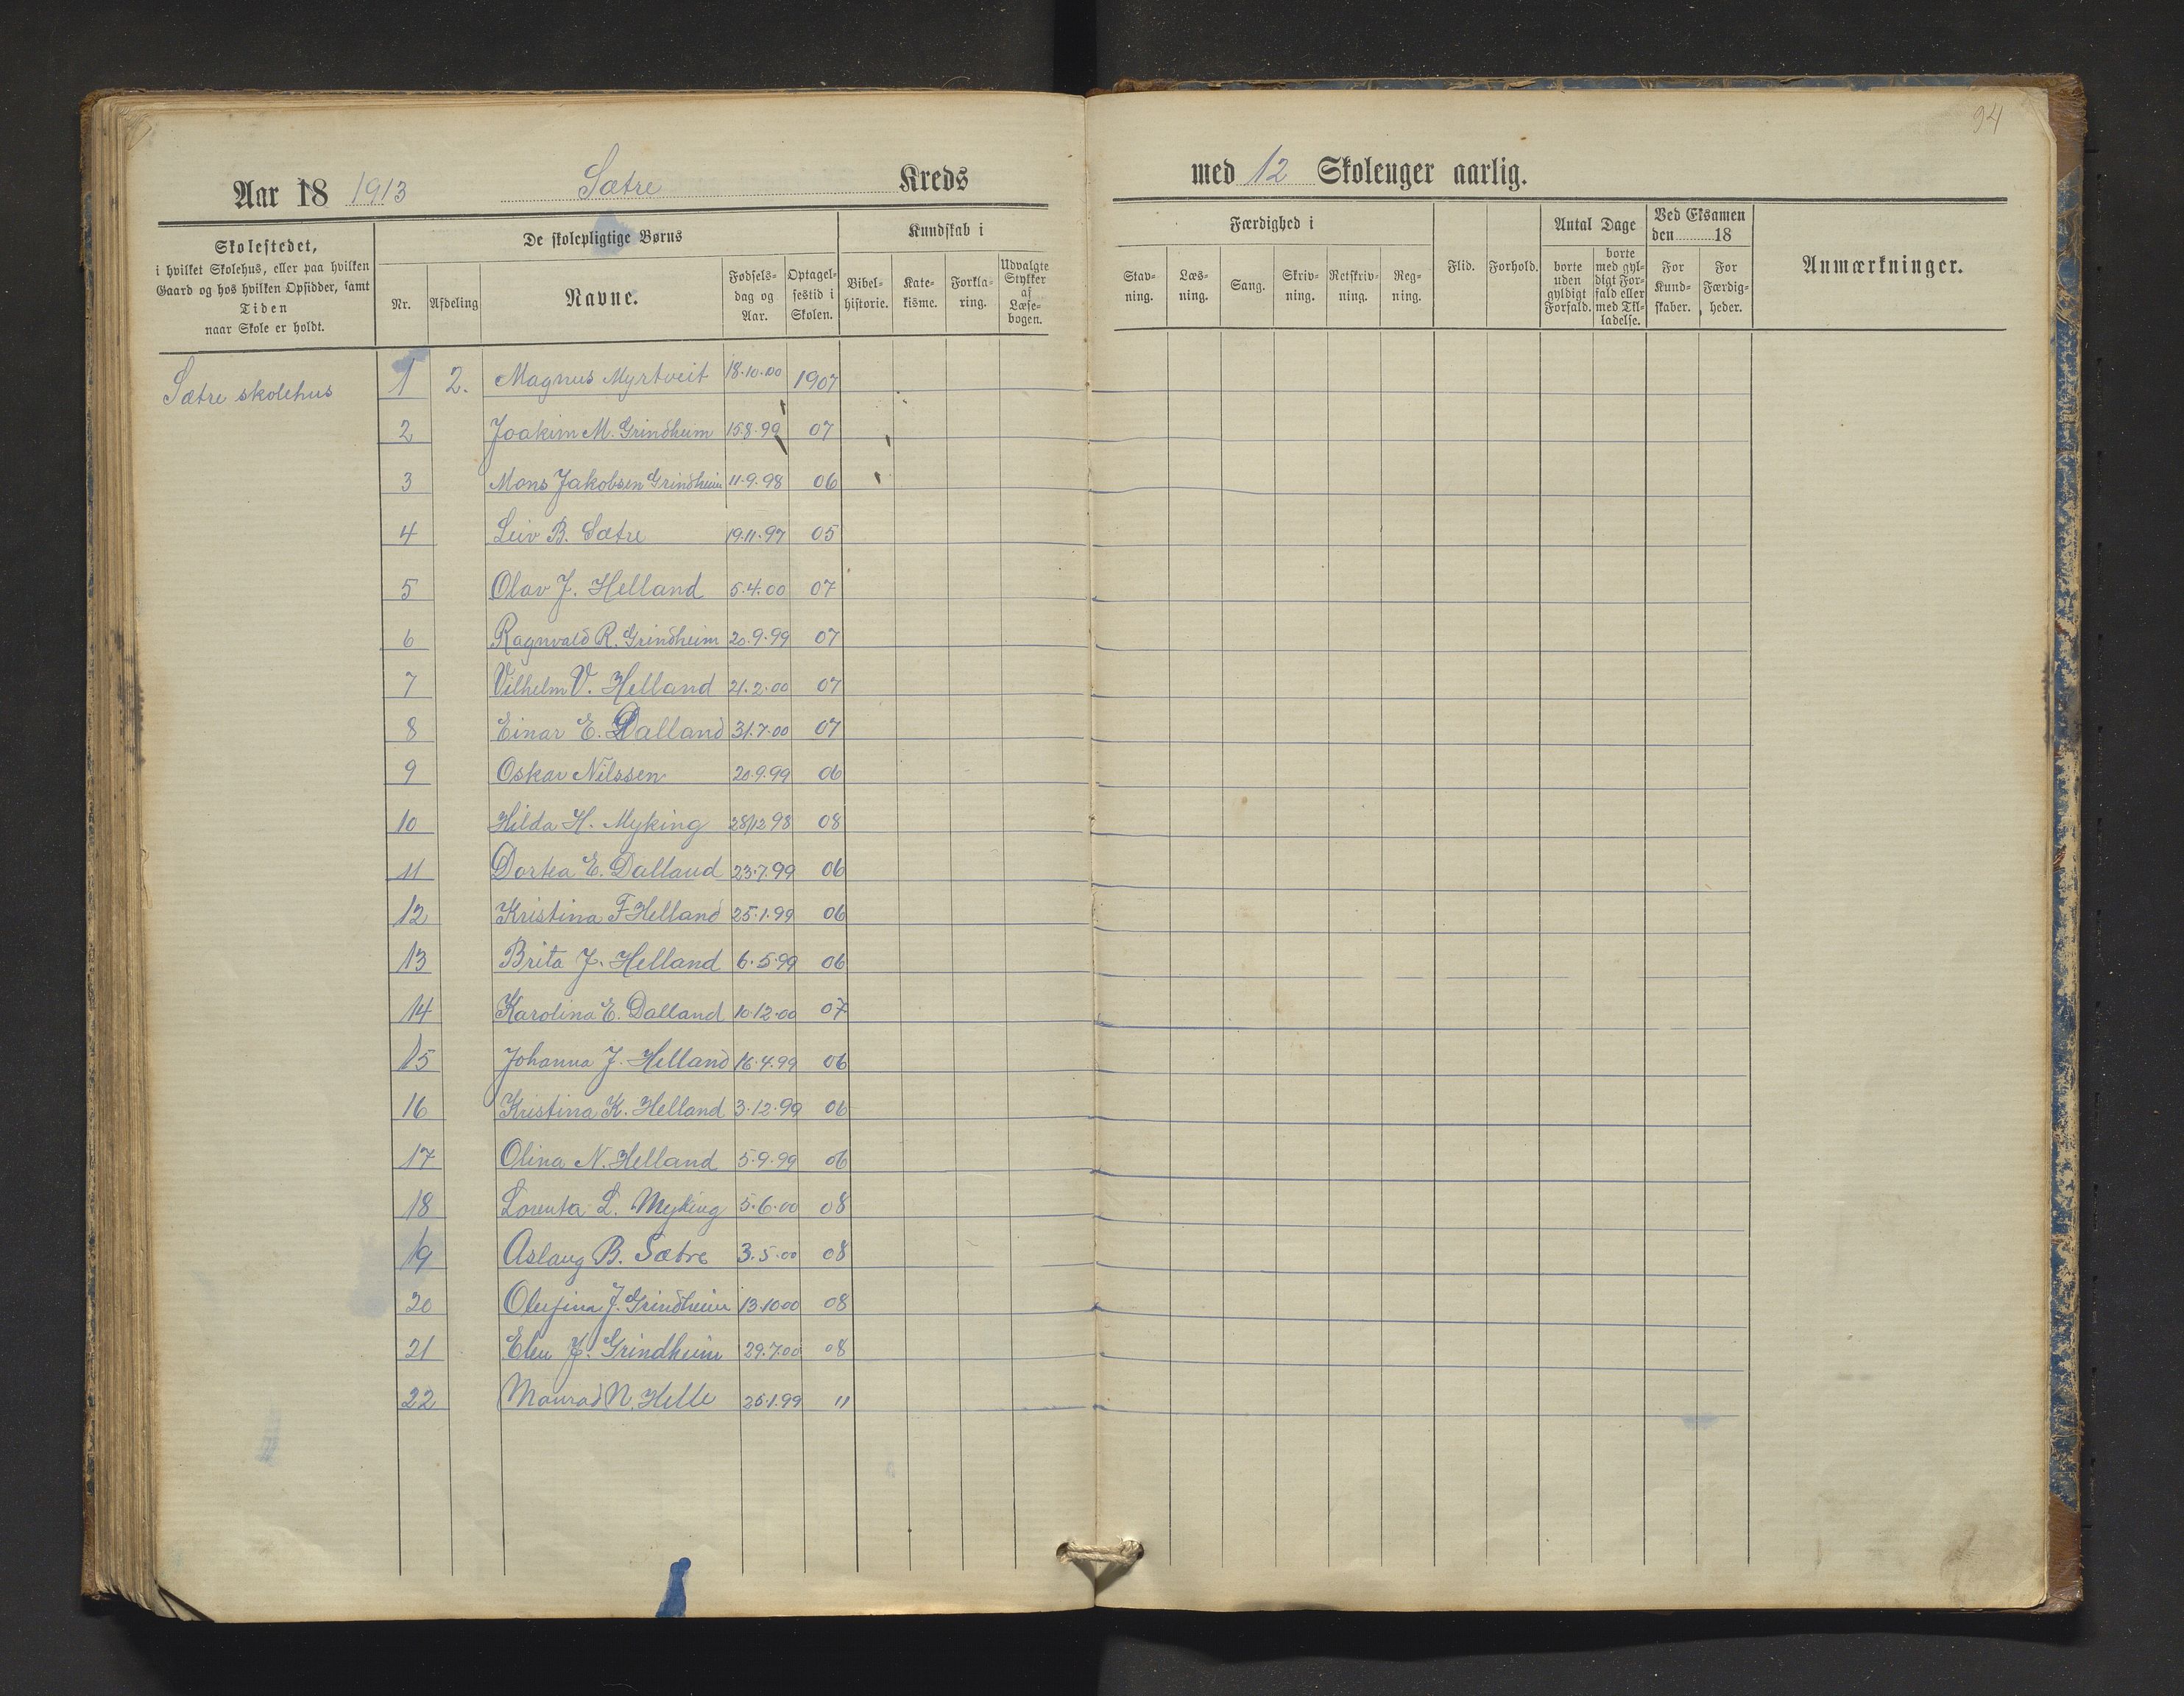 94
Aar 18 1913 Sætre Kreds med 12 Skoleuger aarlig.
Skolestedet,
i hvilket Skolehus, eller paa hvilken
Gaard og hos hvilken Opsidder, samt
Tiden
naar Skole er holdt.
De skolepligtige Børns
Nr. Afdeling Navne. Fødsels-dag og Aar. Optagel-sestid i Skolen.
Kundskab i
Bibel-historie. Kate-kisme. Forkla-ring. Udvalgte Stykker af Læse-bogen.
Færdighed i
Stav-ning. Læs-ning. Sang. Skriv-ning. Retskriv-ning. Reg-ning.
Flid. Forhold.
Antal Dage
borte uden gyldigt Forfald. borte med gyl-digt For-fald eller med Til-ladelse.
Ved Eksamen den 18
For Kund-skaber. For Færdig-heder.
Anmærkninger.
Sætre skolehus
1 2. Magnus Myrtveit 18.10.00 1907
2 Joakim M. Grindheim 15.8.99 07
3 Mons Jakobsen Grindheim 11.9.98 06
4 Leiv B. Sætre 19.11.97 05
5 Olav J. Helland 5.4.00 07
6 Ragnvald R. Grindheim 20.9.99 07
7 Vilhelm V. Helland 21.2.00 07
8 Einar E. Dalland 31.7.00 07
9 Oskar Nilssen 20.9.99 06
10 Hilda H. Myking 28/12 98 08
11 Dortea E. Dalland 23.7.99 06
12 Kristina F Helland 25.1.99 06
13 Brita J. Helland 6.5.99 06
14 Karolina E. Dalland 10.12.00 07
15 Johanna J. Helland 16.4.99 06
16 Kristina K. Helland 3.12.99 06
17 Olina N. Helland 5.9.99 06
18 Lorenta L. Myking 5.6.00 08
19 Aslaug B. Sætre 3.5.00 08
20 Olufina J. Grindheim 13.10.00 08
21 Elen J. Grindheim 29.7.00 08
22 Monrad N. Helle 25.1.99 11